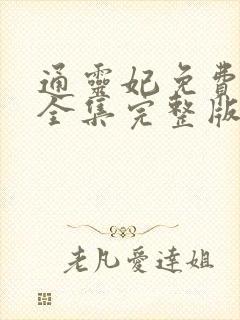 通靈妃免費
全集完整版
老凡愛達姐